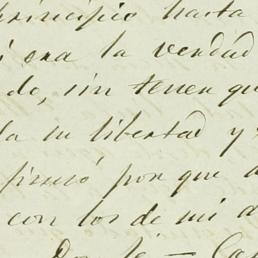 principio hasta
era la verdad
do, sin tener qu
la su libertad y
firmó por que a
con los de mi a
Por te — Ca